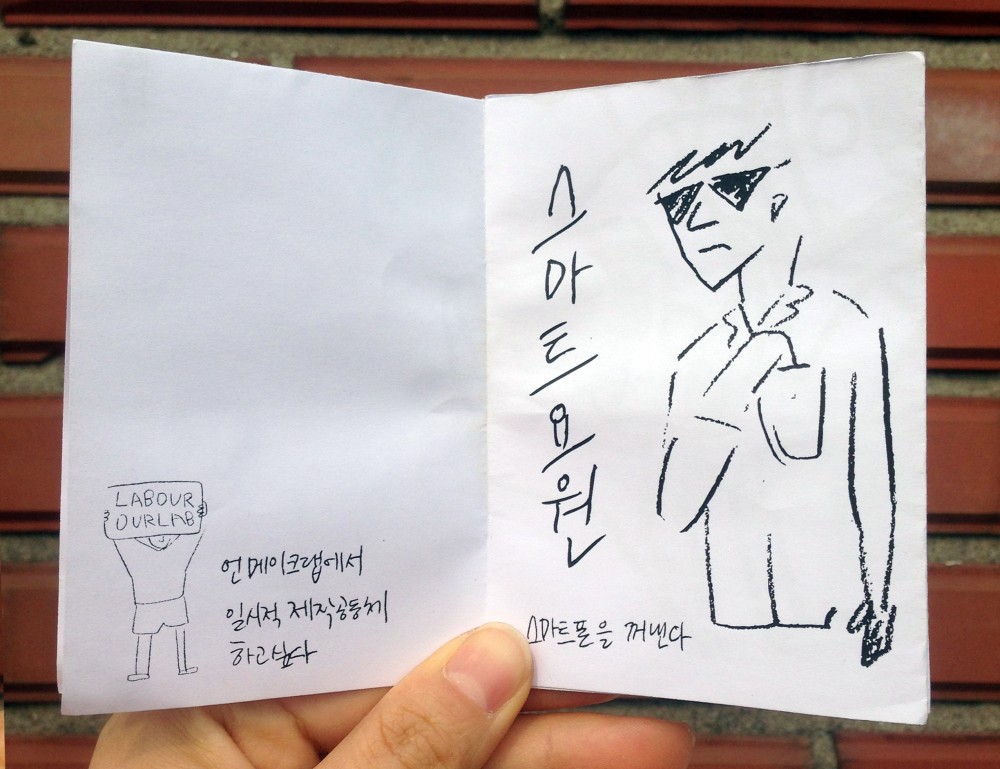 LABOUR
OURLAB
언메이크랩에서
일시적 제작공동체
하고싶다
스마트요원
스마트폰을 꺼낸다